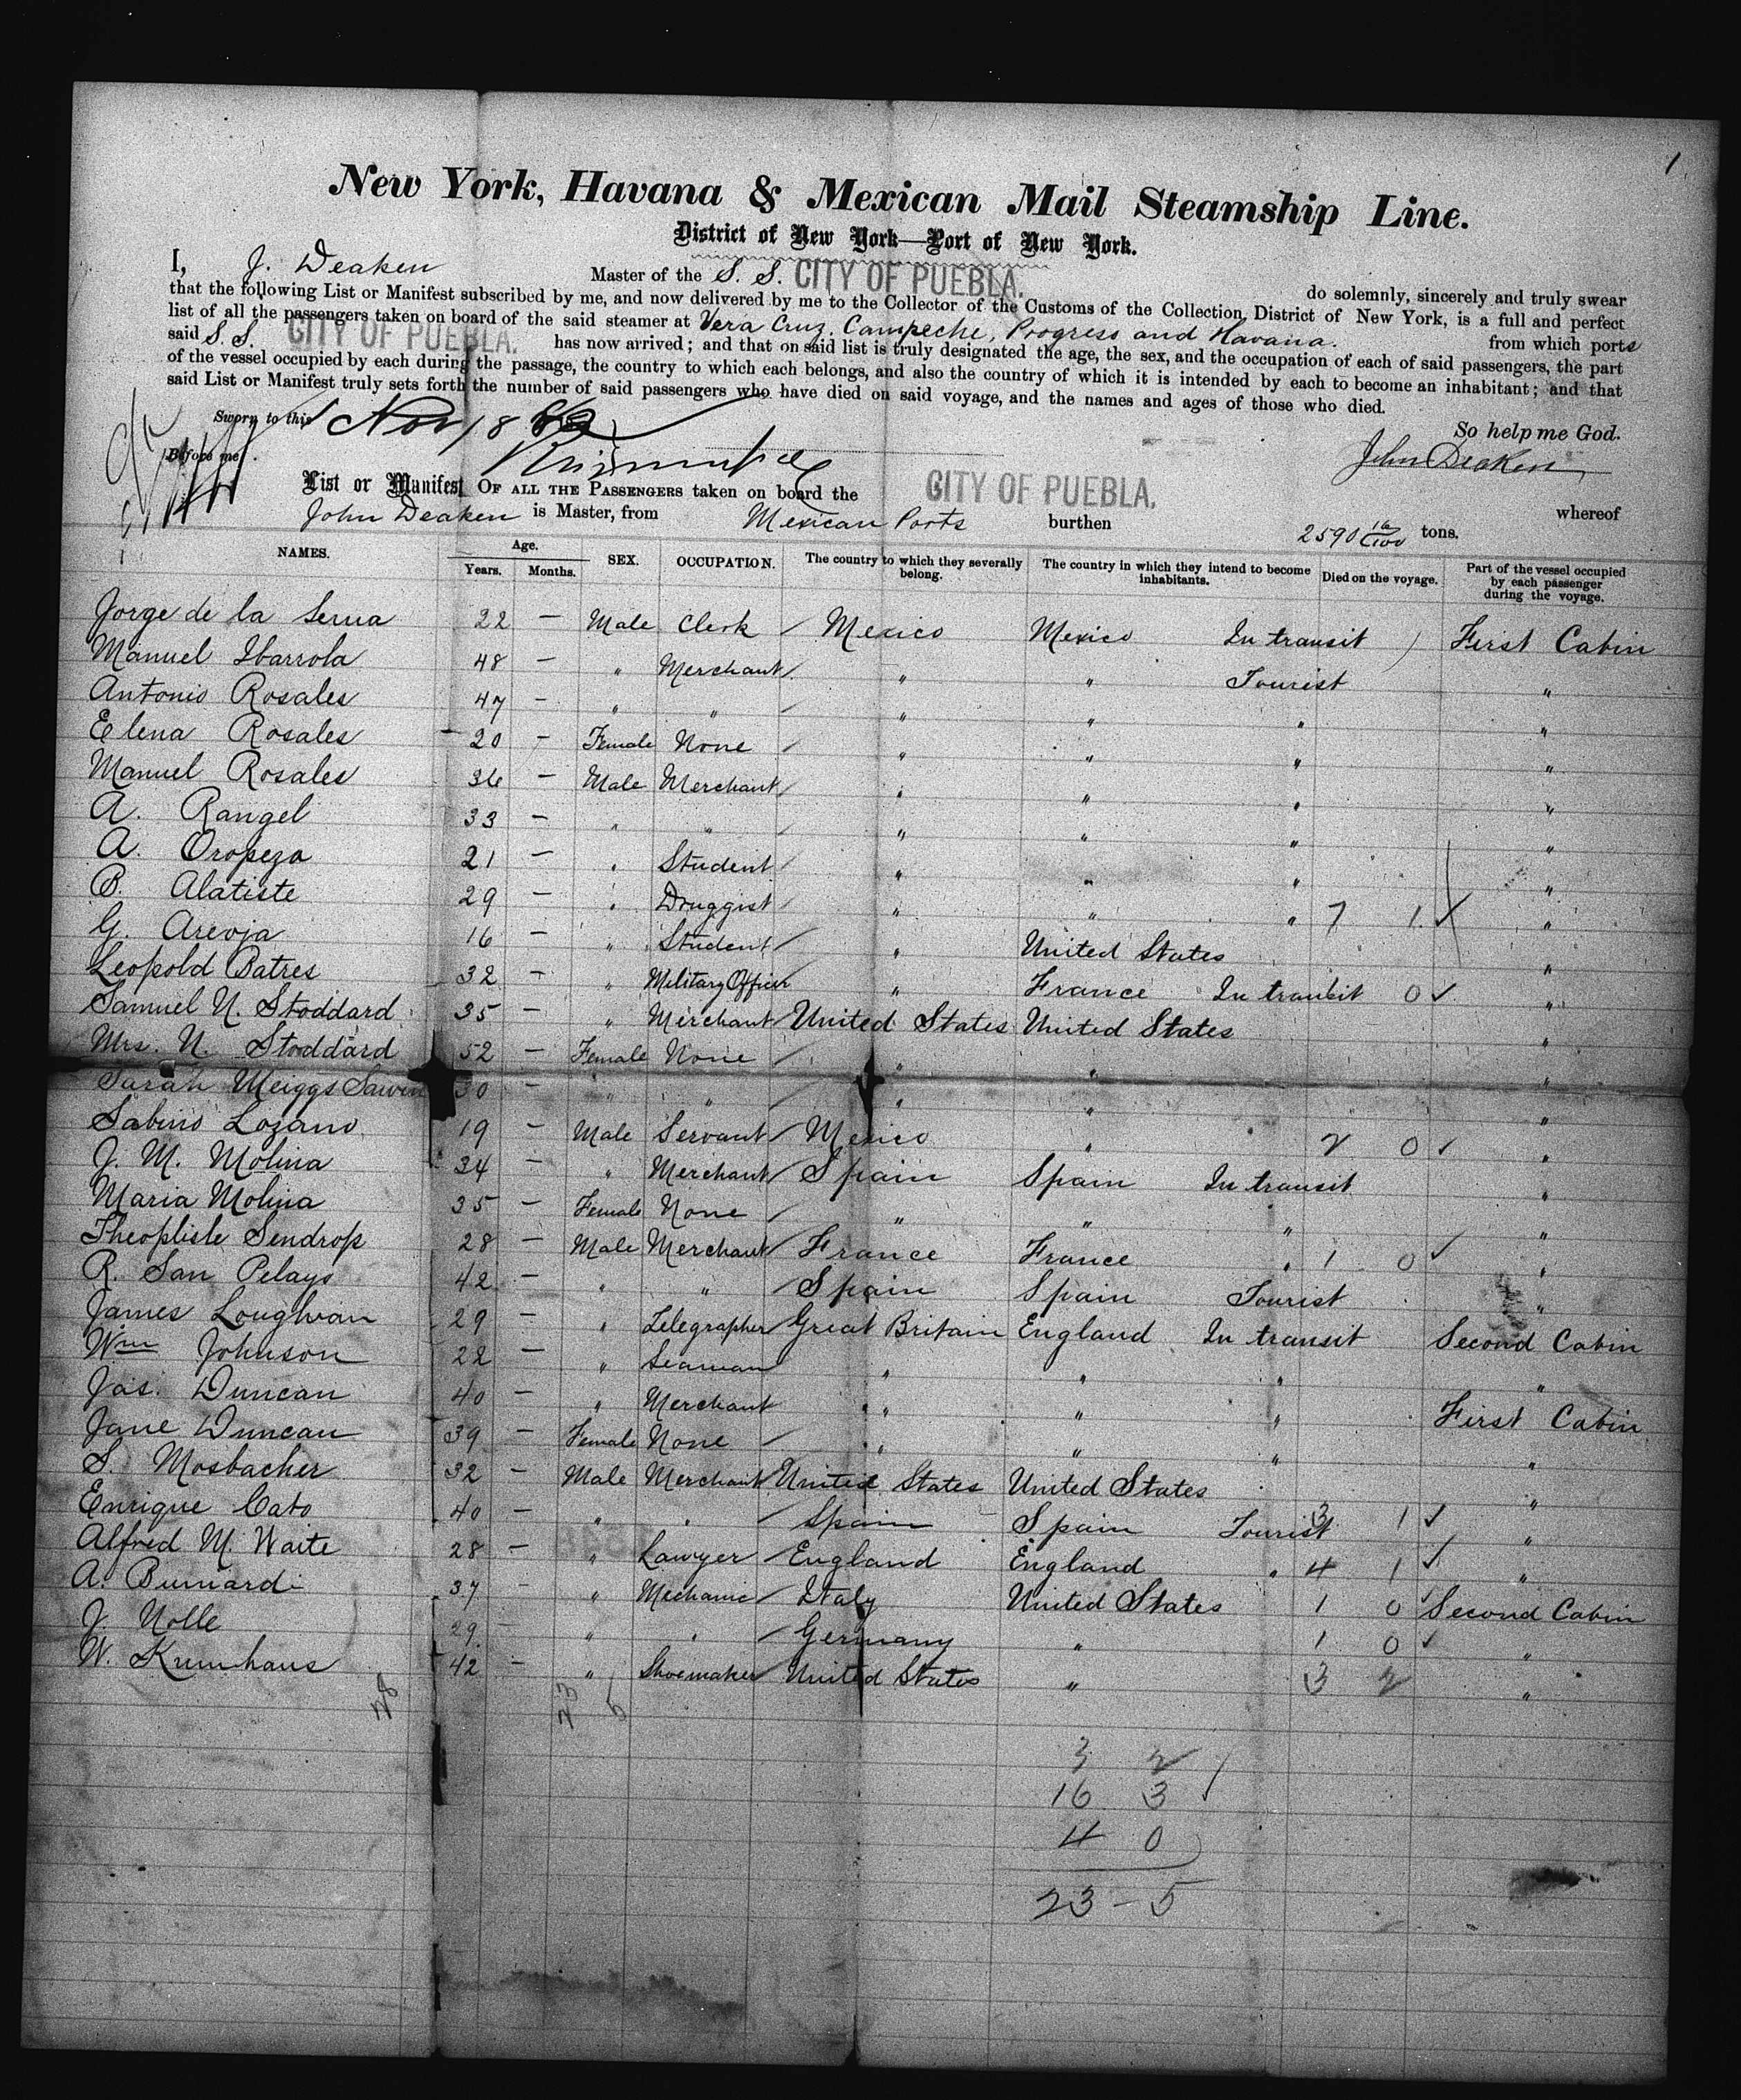 1
New York, Havana & Mexican Mail Steamship Line.
District of New York—Port of New York.
I, J. Deaken Master of the S. S. CITY OF PUEBLA. do solemnly, sincerely and truly swear
that the following List or Manifest subscribed by me, and now delivered by me to the Collector of the Customs of the Collection District of New York, is a full and perfect
list of all the passengers taken on board of the said steamer at Vera Cruz. Campeche, Progreso and Havana. from which ports
said S. S. CITY OF PUEBLA. has now arrived; and that on said list is truly designated the age, the sex, and the occupation of each of said passengers, the part
of the vessel occupied by each during the passage, the country to which each belongs, and also the country of which it is intended by each to become an inhabitant; and that
said List or Manifest truly sets forth the number of said passengers who have died on said voyage, and the names and ages of those who died.
Sworn to this Nov 1 So help me God.
Before me John Deaken
List or Manifest OF ALL THE PASSENGERS taken on board the CITY OF PUEBLA. whereof
John Deaken is Master, from Mexican Ports burthen 2590 16/100 tons.
NAMES. Age. Years. Months. SEX. OCCUPATION. The country to which they severally belong. The country in which they intend to become inhabitants. Died on the voyage. Part of the vessel occupied by each passenger during the voyage.
Jorge de la Serna 22 — Male Clerk Mexico Mexico In transit First Cabin
Manuel Ibarrola 48 — " Merchant " " Tourist "
Antonio Rosales 47 — " " " " " "
Elena Rosales 20 — Female None " " " "
Manuel Rosales 36 — Male Merchant " " " "
A. Rangel 33 — " " " " " "
A. Oropeza 21 — " Student " " " "
B. Alatiste 29 — " Druggist " " " 7 1 "
G. Arevja 16 — " Student " United States "
Leopold Batres 32 — " Military Officer " France In transit 0 "
Samuel N. Stoddard 35 — " Merchant United States United States "
Mrs. N. Stoddard 52 — Female None " " "
Sarah Meiggs 30 — " " " " "
Sabino Lozano 19 — Male Servant Mexico " 2 0 "
J. M. Molina 34 — " Merchant Spain Spain In transit "
Maria Molina 35 — Female None " " " "
Theophiste Sendrop 28 — Male Merchant France France " 1 0 "
R. San Pelayo 42 — " " Spain Spain Tourist "
James Loughran 29 — " Telegrapher Great Britain England In transit Second Cabin
Wm Johnson 22 — " Seaman " " " "
Jas. Duncan 40 — " Merchant " " " First Cabin
Jane Duncan 39 — Female None " " " "
S. Mosbacher 32 — Male Merchant United States United States "
Enrique Cato 40 — " " Spain Spain Tourist 3 1 "
Alfred M. Waite 28 — " Lawyer England England " 4 1 "
A. Burnardi 37 — " Mechanic Italy United States 1 0 Second Cabin
J. Nolle 29 — " " Germany " 1 0 "
W. Krumhaus 42 — " Shoemaker United States " 3 2 "
28 23 5
3 2
16 3
4 0
23 - 5